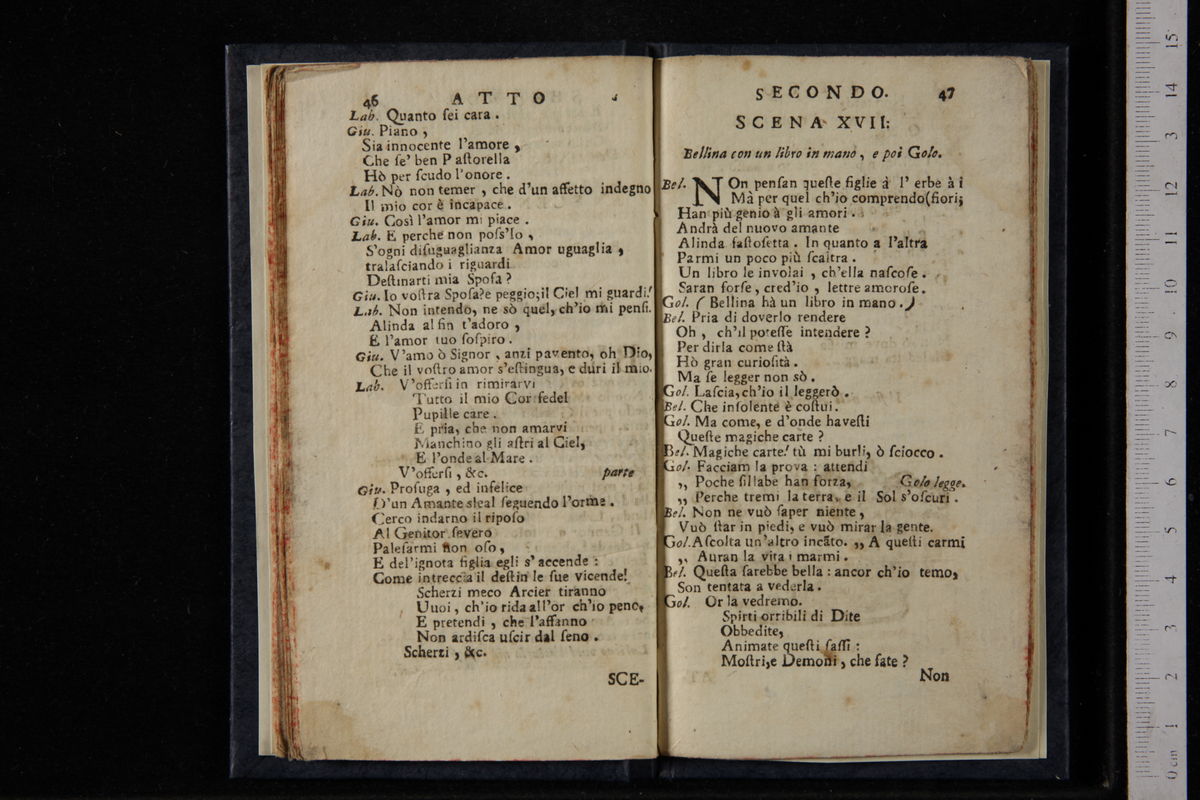 46 ATTO
Lab. Quanto ſei cara .
Giu. Piano ,
Sia innocente l'amore ,
Che ſe' ben Paſtorella
Hò per ſcudo l'onore .
Lab. Nò non temer , che d'un affetto indegno
Il mio cor è incapace .
Giu. Così l'amor mi piace .
Lab. E perche non poſs'Io ,
S'ogni diſuguaglianza Amor uguaglia ,
tralaſciando i riguardi
Deſtinarti mia Spoſa ?
Giu. Io voſtra Spoſa?e peggio;il Ciel mi guardi!
Lab. Non intendo, ne sò quel, ch'io mi penſi.
Alinda al fin t'adoro ,
E l'amor tuo ſoſpiro .
Giu. V'amo ò Signor , anzi pavento, oh Dio,
Che il voſtro amor s'eſtingua, e duri il mio.
Lab. V'offerſi in rimirarvi
Tutto il mio Cor fedel
Pupille care .
E pria, che non amarvi
Manchino gli aſtri al Ciel,
E l'onde al Mare .
V'offerſi , &c. parte
Giu. Profuga , ed infelice
D'un Amante sleal ſeguendo l'orme .
Cerco indarno il ripoſo
Al Genitor ſevero
Paleſarmi non oſo,
E del'ignota figlia egli s'accende :
Come intreccia il deſtin le ſue vicende!
Scherzi meco Arcier tiranno
Uuoi, ch'io rida all'or ch'io peno,
E pretendi , che l'affanno
Non ardiſca uſcir dal ſeno .
Scherzi , &c.
SCE-
SECONDO. 47
SCENA XVII:
Bellina con un libro in mano , e poi Golo.
Bel. NOn penſan queſte figlie à l' erbe à i
Mà per quel ch'io comprendo(fiori;
Han più genio à gli amori .
Andrà del nuovo amante
Alinda faſtoſetta . In quanto a l'altra
Parmi un poco più ſcaltra .
Un libro le involai , ch'ella naſcoſe .
Saran forſe, cred'io , lettre amoroſe.
Gol. ( Bellina hà un libro in mano . )
Bel. Pria di doverlo rendere
Oh , ch'il poteſſe intendere ?
Per dirla come ſtà
Hò gran curioſità .
Ma ſe legger non sò .
Gol. Laſcia, ch'io il leggerò .
Bel. Che inſolente è coſtui .
Gol. Ma come, e d'onde haveſti
Queſte magiche carte ?
Bel. Magiche carte! tù mi burli, ò ſciocco .
Gol. Facciam la prova : attendi
„ Poche ſillabe han forza, Golo legge.
„ Perche tremi la terra, e il Sol s'oſcuri .
Bel. Non ne vuò ſaper niente ,
Vuò ſtar in piedi, e vuò mirar la gente.
Gol. Aſcolta un'altro incãto. „ A queſti carmi
„ Auran la vita i marmi .
Bel. Queſta ſarebbe bella : ancor ch'io temo,
Son tentata a vederla .
Gol. Or la vedremo.
Spirti orribili di Dite
Obbedite,
Animate queſti ſaſſi :
Moſtri,e Demoni , che fate ?
Non